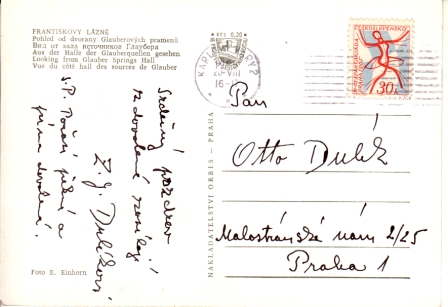 FRANTIŠKOVY LÁZNĚ
Pohled od dvorany Glauberových pramenů
Вид от зала источников Глаубера
Aus der Halle der Glauberquellen gesehen
Looking from Glauber Springs Hall
Vue du côté hall des sources de Glauber
Srdečný pozdrav
z dovolené
Z. J. Dulíkovi
a
dovolená.
Foto E. Einhorn
NAKLADATELSTVÍ ORBIS - PRAHA
Kčs 0,20
KARLOVY VARY
20.VIII
16
ČESKOSLOVENSKO
30h
Pan
Otto Dulík
Malostranské nám 2/25
Praha 1